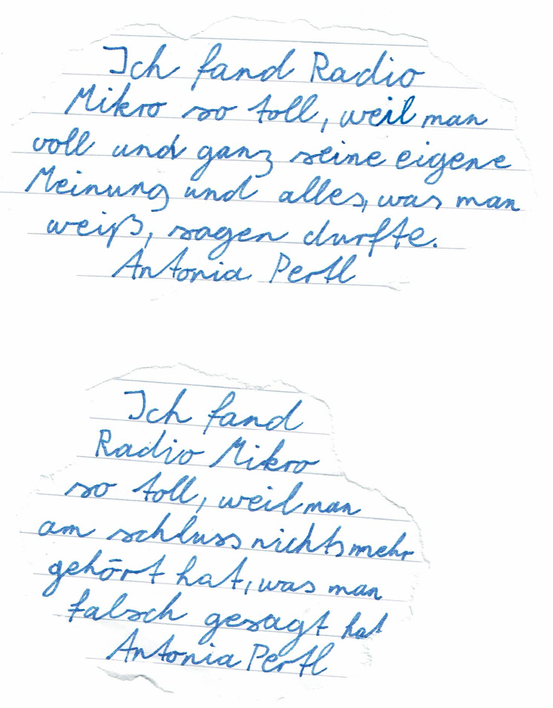 Ich fand Radio
Mikro so toll, weil man
voll und ganz seine eigene
Meinung und alles, was man
weiß, sagen durfte.
Antonia Pertl
Ich fand
Radio Mikro
so toll, weil man
am schluss nichts mehr
gehört hat, was man
falsch gesagt hat
Antonia Pertl